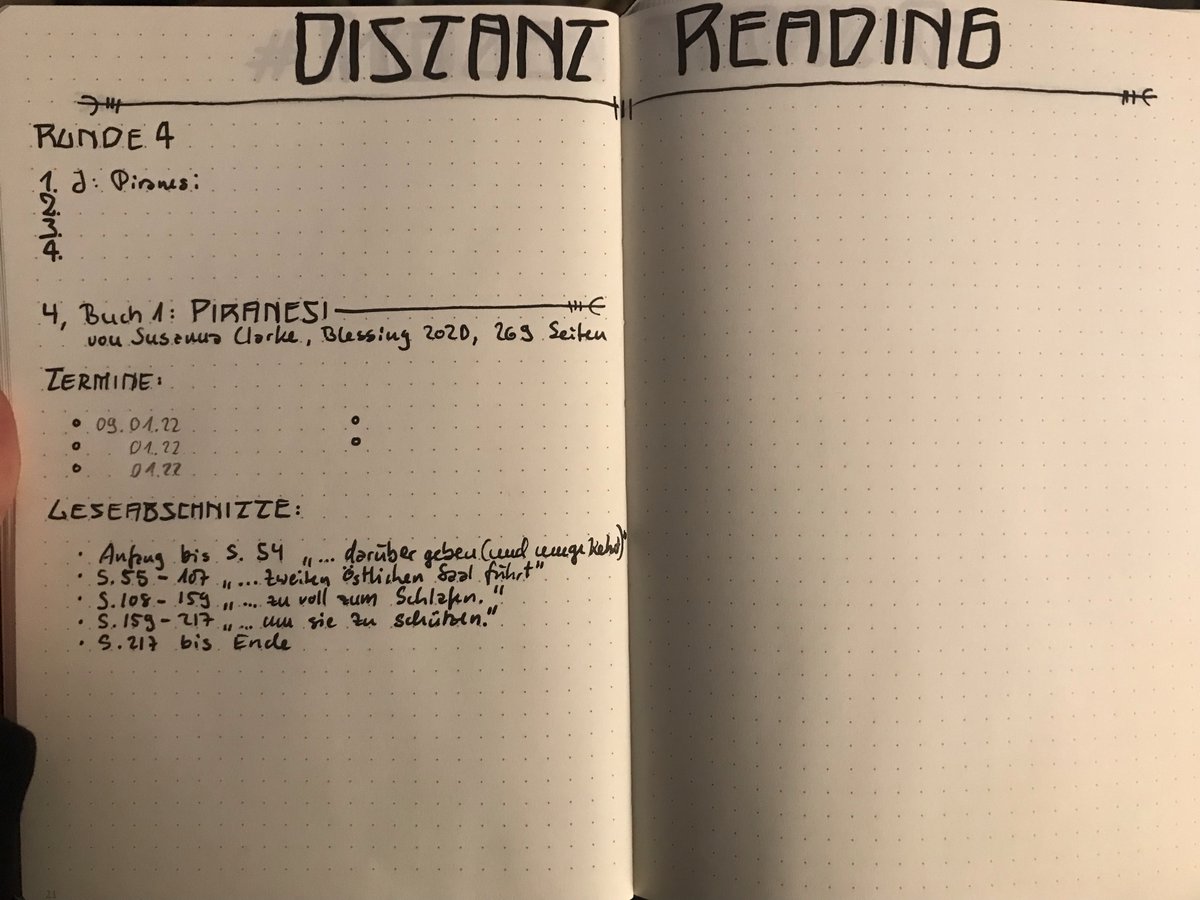 DISTANT READING
RUNDE 4
1. J: Piranesi
2.
3.
4.
4, Buch 1: PIRANESI
von Susanna Clarke, Blessing 2020, 269 Seiten
TERMINE:
• 09.01.22 •
• 01.22 •
• 01.22
LESEABSCHNITTE:
• Anfang bis S. 54 „... darüber geben (und umgekehrt)"
• S. 55 - 107 „... zweiten östlichen Saal führt"
• S. 108 - 159 „... zu voll zum Schlafen."
• S. 159 - 217 „... um sie zu schützen."
• S. 217 bis Ende